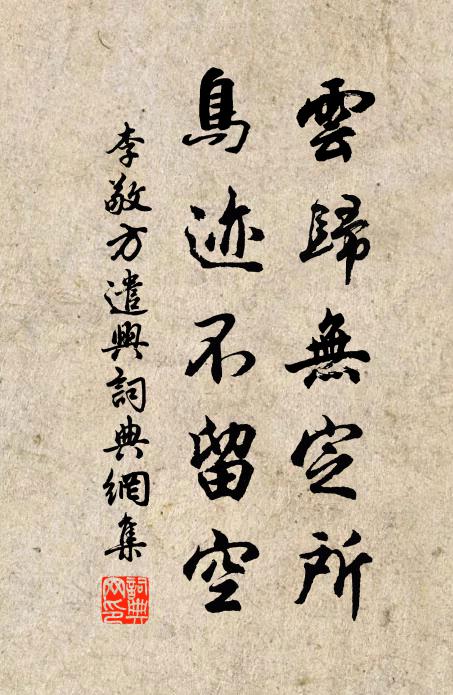 雲歸無定所
鳥迹不留空
李敬方遣興詞典網集
詞典网印